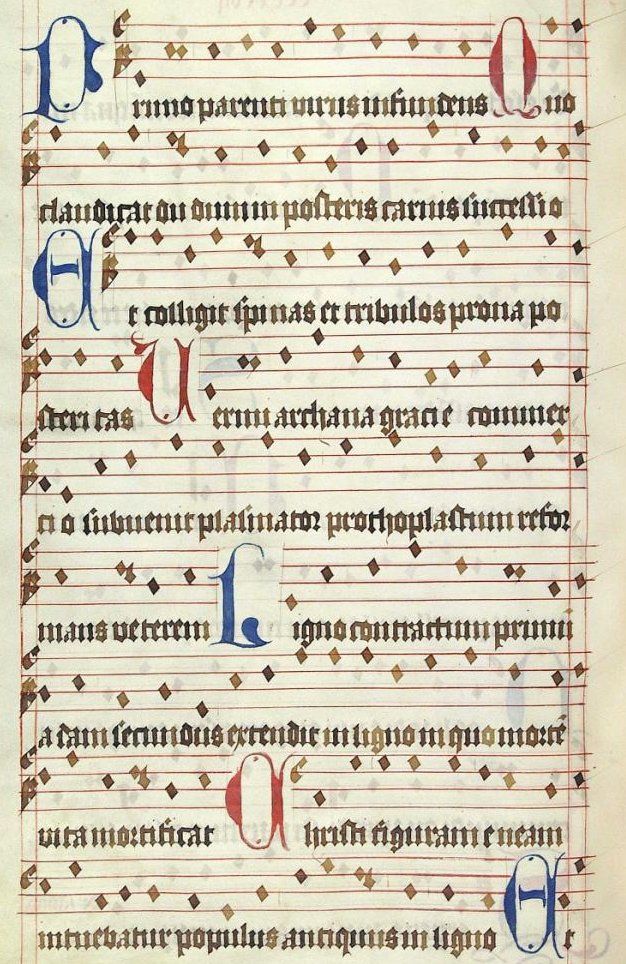 Primo parenti virus infundens Quo
claudicat du dinum posteris carnis successio
Et colligit spinas et tribulos prona po
steritas Verum archana gracie commer
ti o subuenit plasmator prothoplastum refor
mans veterem Ligno contractum primi
adam secundus extendit in ligno in quo mortē
vita mortificat Christi figuram eneam
intuebatur populus antiquus in ligno Et